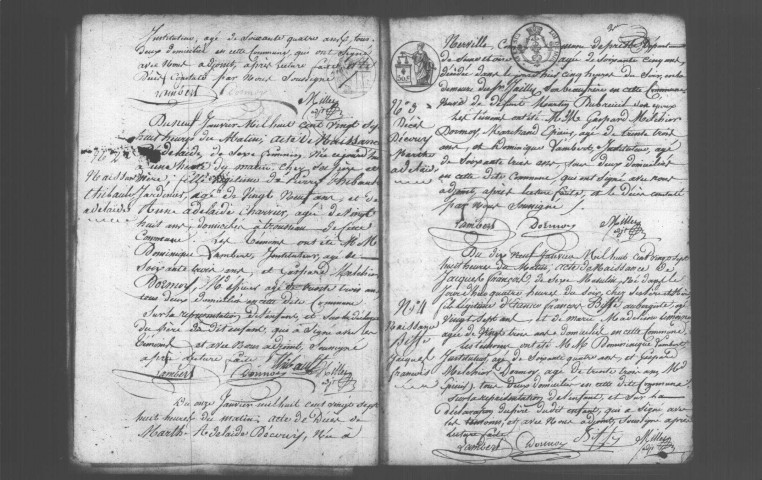 Instituteur, agé de Soixante quatre ans, tous
deux domiciliés en cette Commune, qui ont signé
avec Nous adjoint, après lecture faite et le
Décès Constaté par Nous Soussigné
Lambert Dormoy Millery adj
N° 2
Naissance
thibault
adelaide
Du neuf Janvier Mil huit cent vingt sept
huit heures du Matin, acte de Naissance
adelaide de Sexe féminin, Née
une heure du matin, chez ses père et
mère, fille légitime de Pierre thibault
Jardinier, agé de Vingt Neuf ans, et de
Anne adelaide agée de Vingt
huit ans, domiciliés à de cette
Commune. Les témoins ont été MM
Dominique Lambert, Instituteur, agé de
Soixante trois ans, et Gaspard Melchior
Dormoy, Md Epicier agé de trente trois ans
tous deux domiciliés en cette dite Commune
Sur la représentation de l'enfant, et Sur la déclaration
du père du dit enfant, qui a Signé avec les
témoins et avec Nous adjoint, Soussigné
après lecture faite
Lambert Dormoy Thibault Millery adj
Du onze Janvier mil huit cent vingt sept
huit heures du matin; acte de Décès de
Marthe Adelaide Décourvis, Née à
N° 3
Décès
Marthe
adelaide
Nerville,
de Seine et oise, agée de Soixante cinq ans
décédée dans cinq heures du Soir, en la
demeure du Sr. en cette Commune
Les témoins ont été MM Gaspard Melchior
Dormoy, Marchand Epicier, agé de trente trois
ans, et Dominique Lambert, Instituteur, agé
de Soixante trois ans, tous deux domiciliés
en cette dite Commune, qui ont signé avec nous
adjoint, après lecture faite, et le Décès constaté
par Nous Soussigné
Lambert Dormoy Millery adj
N° 4
Naissance
Jacques
francois
Du dix neuf Janvier Mil huit cent vingt sept
huit heures du Matin, acte de Naissance de
Jacques françois de Sexe Masculin, Né
à quatre heures du Soir chez ses père et mère
fils légitime d'Etienne françois aubergiste, agé
Vingt sept ans et de marie Madeleine
agée de Vingt trois ans domiciliés en cette Commune
Les témoins ont été MM Dominique Lambert
Instituteur, agé de Soixante quatre ans, et Gaspard
Melchior Dormoy, agé de trente trois ans Md
Epicier, tous deux domiciliés en cette dite Commune
Sur la représentation de l'enfant, et Sur la
déclaration du père du dit enfant, qui a Signé avec
les témoins, et avec Nous adjoint, Soussigné après
lecture faite
Lambert Dormoy Millery adj